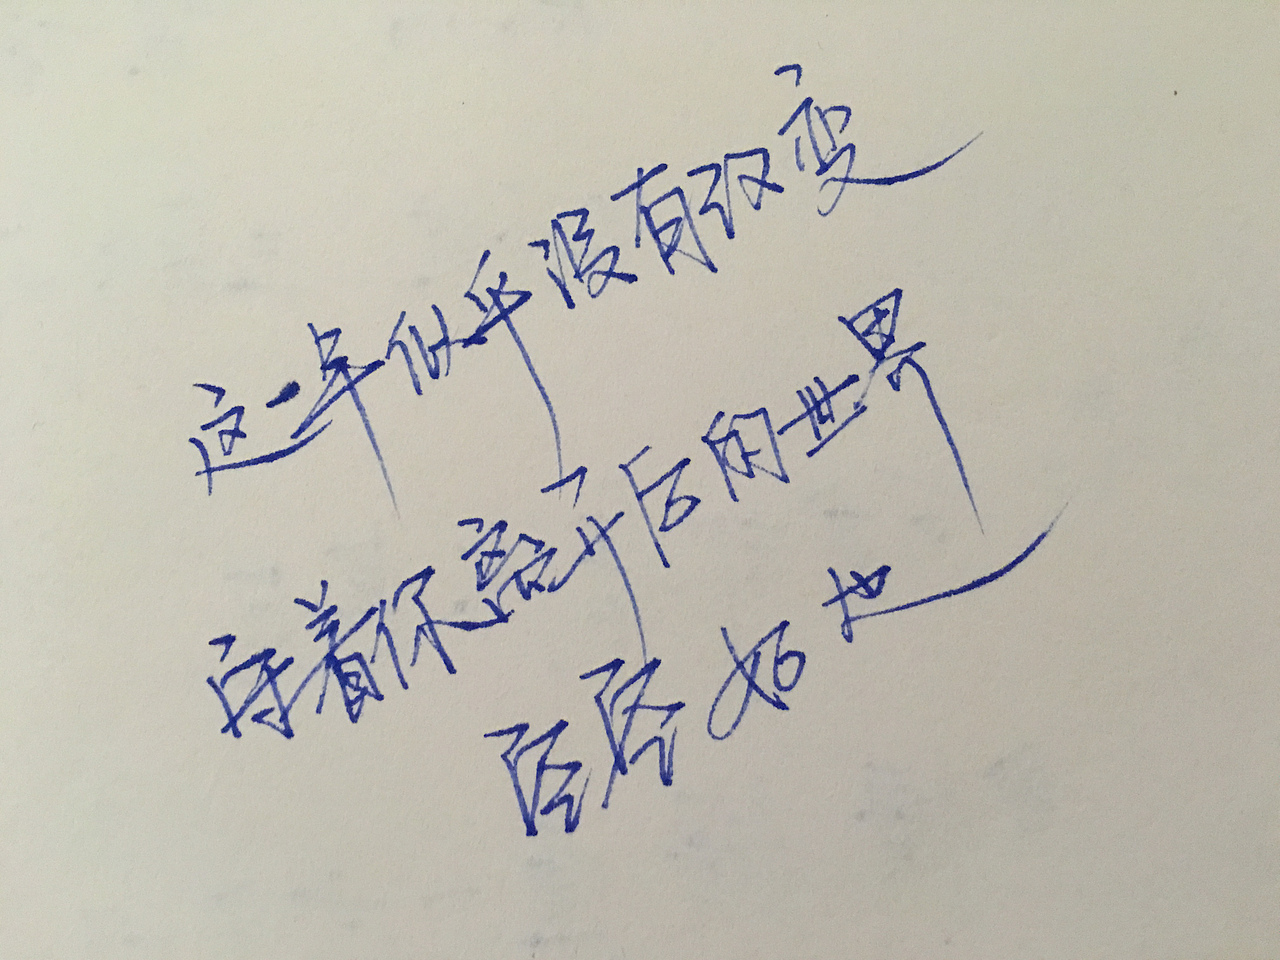 这一年似乎没有改变
守着你离开后的世界
空空如也